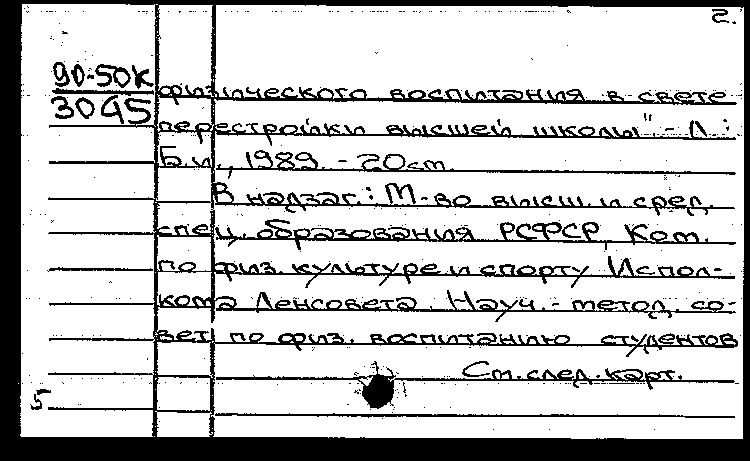 2.
90-50к
3045
физического воспитания в свете
перестройки высшей школы" - Л.:
Б.и., 1989. - 20 см.
В надзаг.: М-во высш. и сред.
спец. образования РСФСР, Ком.
по физ. культуре и спорту Испол-
кома Ленсовета. Науч.-метод. со-
вет по физ. воспитанию студентов
См. след. карт.
5